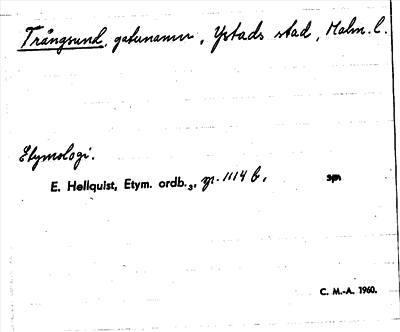 Trångsund, gatunamn, Ystads stad, Malm. l.
Etymologi.
E. Hellquist, Etym. ordb.₃, sp. 1114 b.
C. M.-A. 1960.